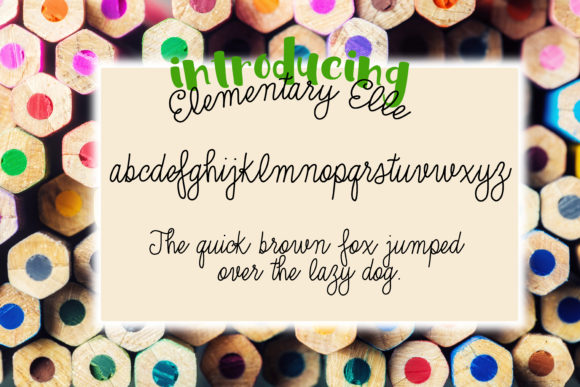 introducing
Elementary Elle
abcdefghijklmnopqrstuvwxyz
The quick brown fox jumped
over the lazy dog.